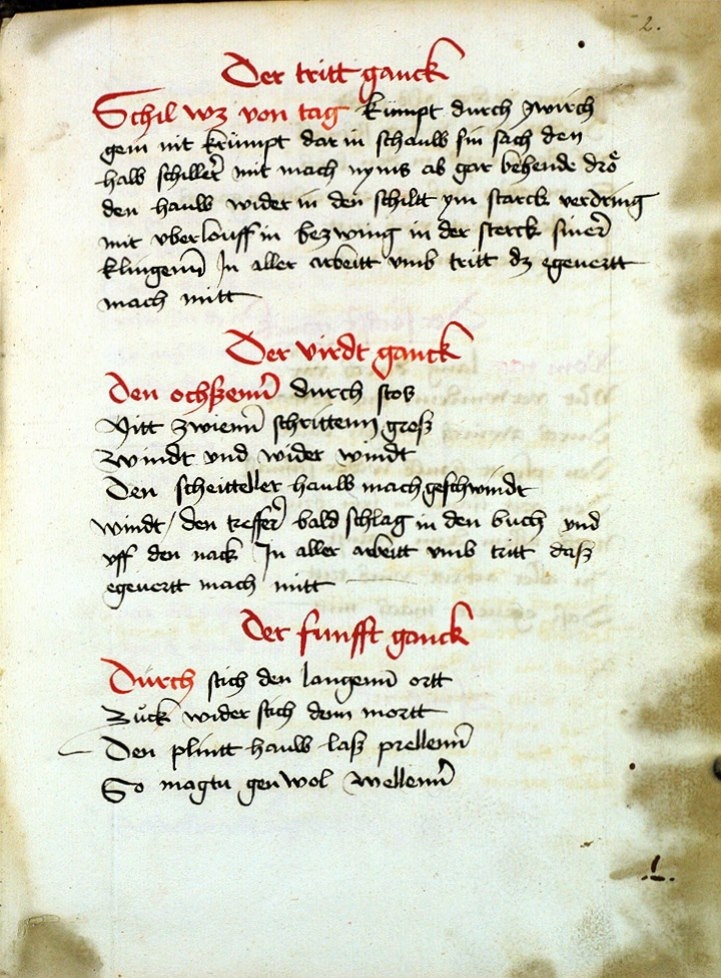 2.
Der tritt ganck
Schil wz von tag kümpt durch zwirch
gein nit krümpt dar in schauw sin sach den
halb schiller mit mach nyms ab gar behende drö
den hauw wider in den schiltt ym starck verdring
mit vberlouff in bezwing in der sterck siner
klingenn In aller arbeitt vmb tritt dz egevertt
mach mitt
Der virdt ganck
Den ochssenn durch stos
Mitt zwienn schrittenn gross
windt vnd wider windt
Den scheitteller hauw mach geschwindt
windt / den treffer bald schlag in den buch vnd
vff den nack In aller arbeitt vmb tritt dass
egevertt mach mitt
Der funfft ganck
Dürch stich den langenn ortt
Zuck wider stich dem mortt
Den plintt hauw lass prellenn
So magtu gen wol wellenn
.1.